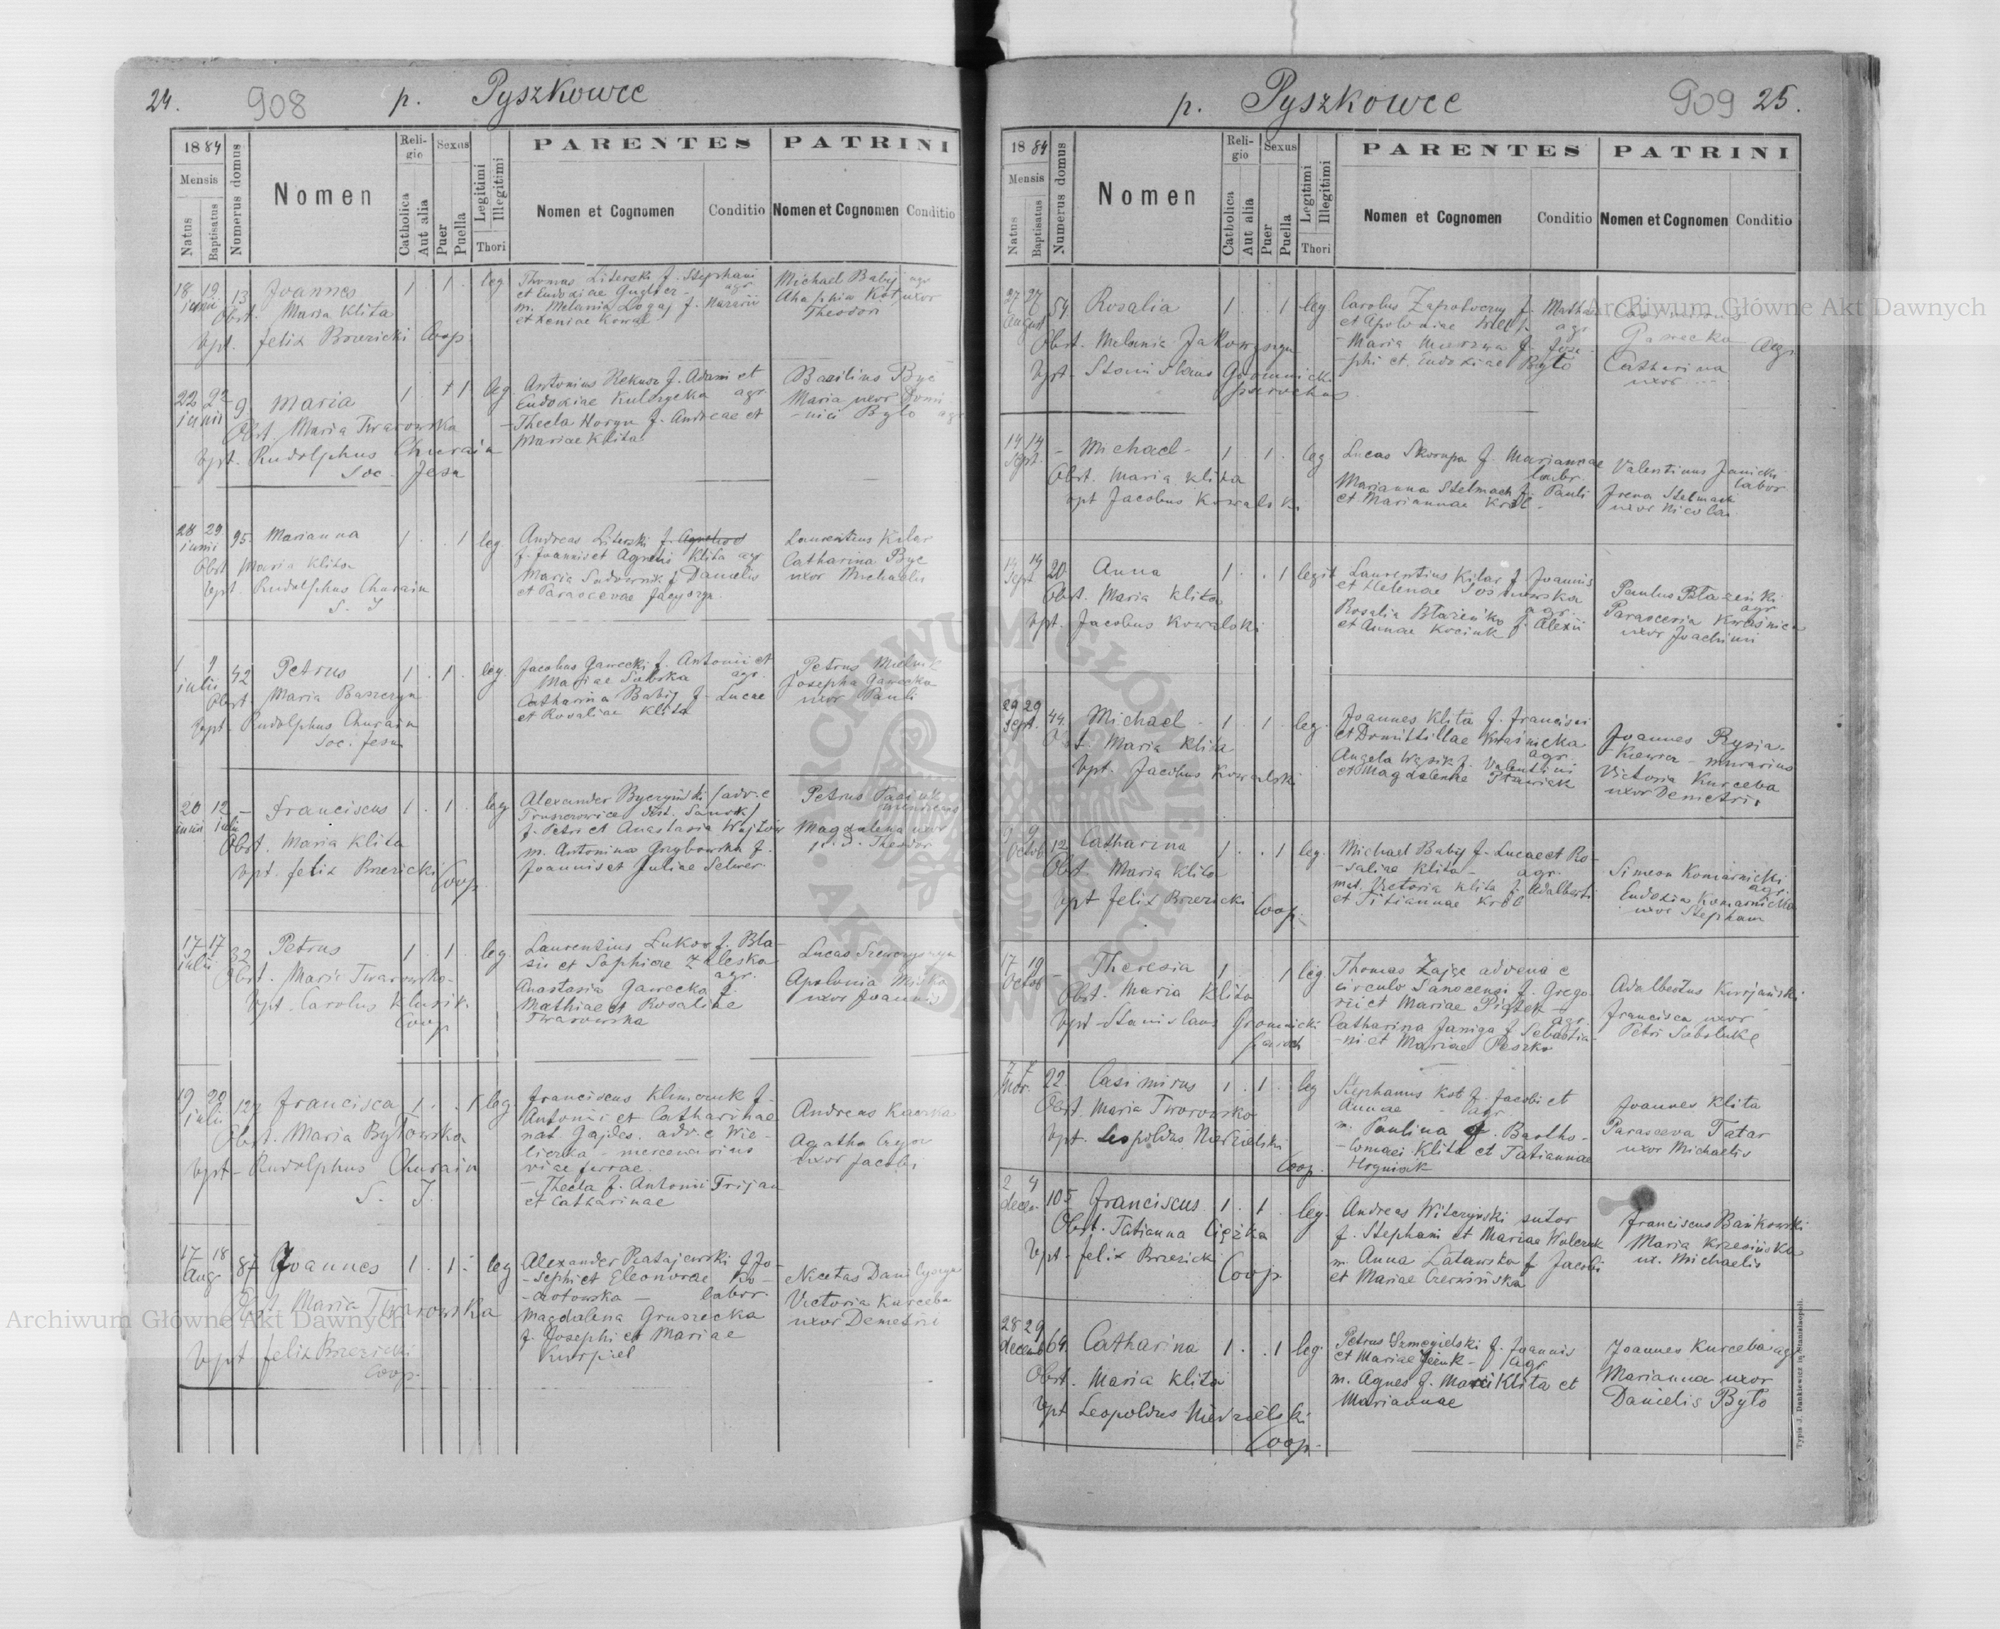 24. 908 p. Pyszkowce
1884
Mensis
Natus
Baptisatus
Numerus domus
Nomen
Religio
Catholica
Aut alia
Sexus
Puer
Puella
Legitimi
Illegitimi
Thori
PARENTES
Nomen et Cognomen
Conditio
PATRINI
Nomen et Cognomen
Conditio
18 19 13 Joannes 1 . 1 . leg
junii
Obst. Maria Klita
bpt. felix Brzezicki Coop
Thomas Literski f. Stephani
et Eudoxiae agr
m. Melania f. Nazarii
et Xeniae Kowal
Michael Babij agr
Ahaphia Kot uxor
Theodori
22 22 9 Maria 1 1 leg
junii
Obst. Maria Twarowska
bpt. Rudolphus Churain
Soc. Jesu
Antonius Rekusz f. Adami et
Eudoxiae Kulczycka agr.
Thecla Horyn f. Andreae et
Mariae Klita
Basilius Być
Maria uxor Domi
-nici Byto agr
28 29 95 Marianna 1 . . 1 leg
junii
Obst Maria Klita
bpt. Rudolphus Churain
S. J
Andreas Literski f.
f. Joannis et Agnetis Klita agr
Maria f. Danielis
et Parascevae
Laurentius Kilar
Catharina Być
uxor Michaelis
1 9 42 Petrus 1 . 1 . leg.
julii
Obst Maria Baszczyn
bapt. Rudolphus Churain
Soc. Jesu
Jacobus Gawecki f. Antonii et
Mariae agr.
Catharina Babij f. Lucae
et Rosaliae Klita
Petrus Melnik
Josepha Gawecka
uxor Pauli
20 12 - franciscus 1 . 1 . leg
junii julii
Obst. Maria Klita
bpt. felix Brzezicki Coop
Alexander Byczyński (adv. e
Truszowice dist. Sanok)
f. Petri et Anastasia Wojtów
m. Antonina Grzybowska f.
Joannis et Juliae Selwer
Petrus
Magdalena uxor
Theodor
17 17 32 Petrus 1 . 1 . leg.
julii
Obst. Maria Twarowska
bpt. Carolus Klusik
Coop
Laurentius Lukow f. Bla-
sii et Sophiae Zaleska
agr.
Anastasia Gawecka f.
Mathiae et Rosaliae
Twarowska
Lucas
Apolonia
uxor Joannis
19 20 127 francisca 1 . . 1 leg
julii
Obst. Maria Bytowska
bpt. Rudolphus Churain
S. J.
franciscus Klimczuk f.
Antonii et Catharinae
nat. Gajdes. adv. e Wie-
liczka - mercenarius
viae ferrae
- Thecla f. Antonii Trijan
et Catharinae
Andreas
Agatha
uxor Jacobi
17 18 87 Joannes 1 . 1 . leg
Aug.
Obst. Maria Twarowska
bpt felix Brzezicki
Coop.
Alexander Ratajewski f. Jo-
-sephi et Eleonorae Ko-
-lotowska - labor.
Magdalena Gruszecka
f. Josephi et Mariae
Kurpiel
Nicetas Danilczyszyn
Victoria Kurceba
uxor Demetrii
p. Pyszkowce 909 25.
1884
Mensis
Natus
Baptisatus
Numerus domus
Nomen
Religio
Catholica
Aut alia
Sexus
Puer
Puella
Legitimi
Illegitimi
Thori
PARENTES
Nomen et Cognomen
Conditio
PATRINI
Nomen et Cognomen
Conditio
27 27 54 Rosalia 1 . . 1 leg
August
Obst. Melania Jakowyszyn
bpt - Stanislaus Gromnicki
parochus
Carolus f. Mathiae
et Apoloniae agr
- Maria f. Jose-
-phi et Eudoxiae Byto
Gawecka agr
Catharina
uxor
14 14 - Michael - 1 . 1 . leg
Sept.
Obst. Maria Klita
bpt Jacobus Kowalski
Lucas Skorupa f. Mariannae
labr.
Marianna Stelmach f. Pauli
et Mariannae Król -
Valentinus Janicki
labor
Irena Stelmach
uxor Nicolai
14 14 20 Anna 1 . . 1 legit
Sept
Obst. Maria Klita
bpt. Jacobus Kowalski
Laurentius Kilar f. Joannis
et Helenae Sosnowska
agr.
Rosalia Błażeńko f. Alexii
et Annae Kociuk
Paulus Błazeńki
agr
Parascevia Kwaśnica
uxor Joachimi
29 29 44 Michael - 1 . 1 . leg.
Sept.
Maria Klita
bpt. Jacobus Kowalski
Joannes Klita f. francisci
et Domitillae Kwaśnicka
agr.
Angela Węsik f. Valentini
et Magdalenae Pławiek
Joannes Rysia-
-kiewicz - murarius
Victoria Kurceba
uxor Demetri.
9 9 12 Catharina 1 . . 1 leg.
Octob
Obst. Maria Klita
bpt felix Brzezicki Coop.
Michael Babij f. Lucae et Ro-
-saliae Klita - agr.
mat. Victoria Klita f. Adalberti
et Titiannae Król
Simeon Komarnicki
agr.
Eudoxia Komarnicka
uxor Stephani
17 19 - Theresia 1 . . 1 leg
Octob
Obst. Maria Klita
bpt - Stanislaus Gromnicki
paroch
Thomas Zając advena e
circulo Sanocensi f. Grego-
rii et Mariae Piątek
agr.
Catharina Janiga f. Sebastia-
-ni et Mariae Peszko
Adalbertus
francisca uxor
Petri
7 7 22. Casimirus 1 . 1 . leg
Nov.
Obst. Maria Tworowska
bpt. Leopoldus Niedzielski
Coop.
Stephanus Kot f. Jacobi et
Annae - agr.
m. Paulina f. Bartho-
-lomaei Klita et Tatiannae
Hryniuk
Joannes Klita
Parasceva Tatar
uxor Michaelis
2 4 105 franciscus 1 . 1 . leg.
decem.
Obst. Tatianna Ciężka
bpt - felix Brzezicki
Coop
Andreas Witczyński sutor
f. Stephani et Mariae Walczuk
m. Anna Latawska f. Jacobi
et Mariae Czerwińska
franciscus Bańkowski
Maria Krzesińska
ux. Michaelis
28 29 64. Catharina 1 . . 1 leg.
decemb
Obst. Maria Klita
bpt Leopoldus Niedzielski
Coop.
Petrus Szmegielski f. Joannis
et Mariae - agr
m. Agnes f. Marci Klita et
Mariannae
Joannes Kurceba agr
Marianna uxor
Danielis Byto
Typis J. Dankiewicz in Stanislaopoli.
Archiwum Główne Akt Dawnych
Archiwum Główne Akt Dawnych
ARCHIWUM GŁÓWNE AKT DAWNYCH